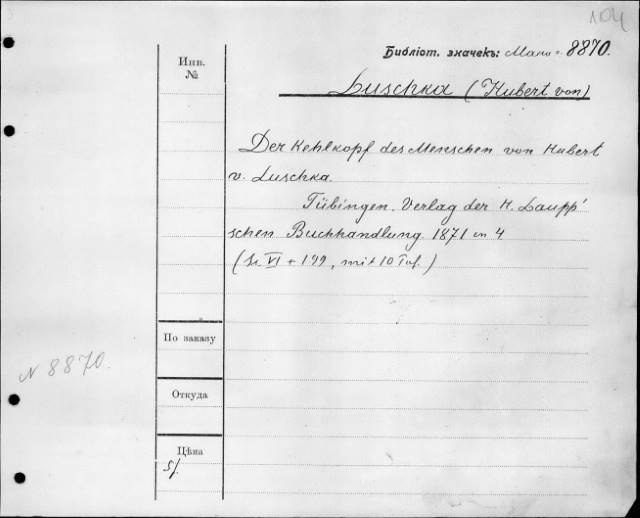 104
Библіот. значекъ: 8870.
Инв.
№
Luschka (Hubert von)
Der Kehlkopf des Menschen von Hubert
v. Luschka.
Tübingen. Verlag der H. Laupp'
schen Buchhandlung. 1871 in 4
(Sc VI + 199, mit 10 Taf.)
По заказу
N 8870.
Откуда
Цѣна
5/.